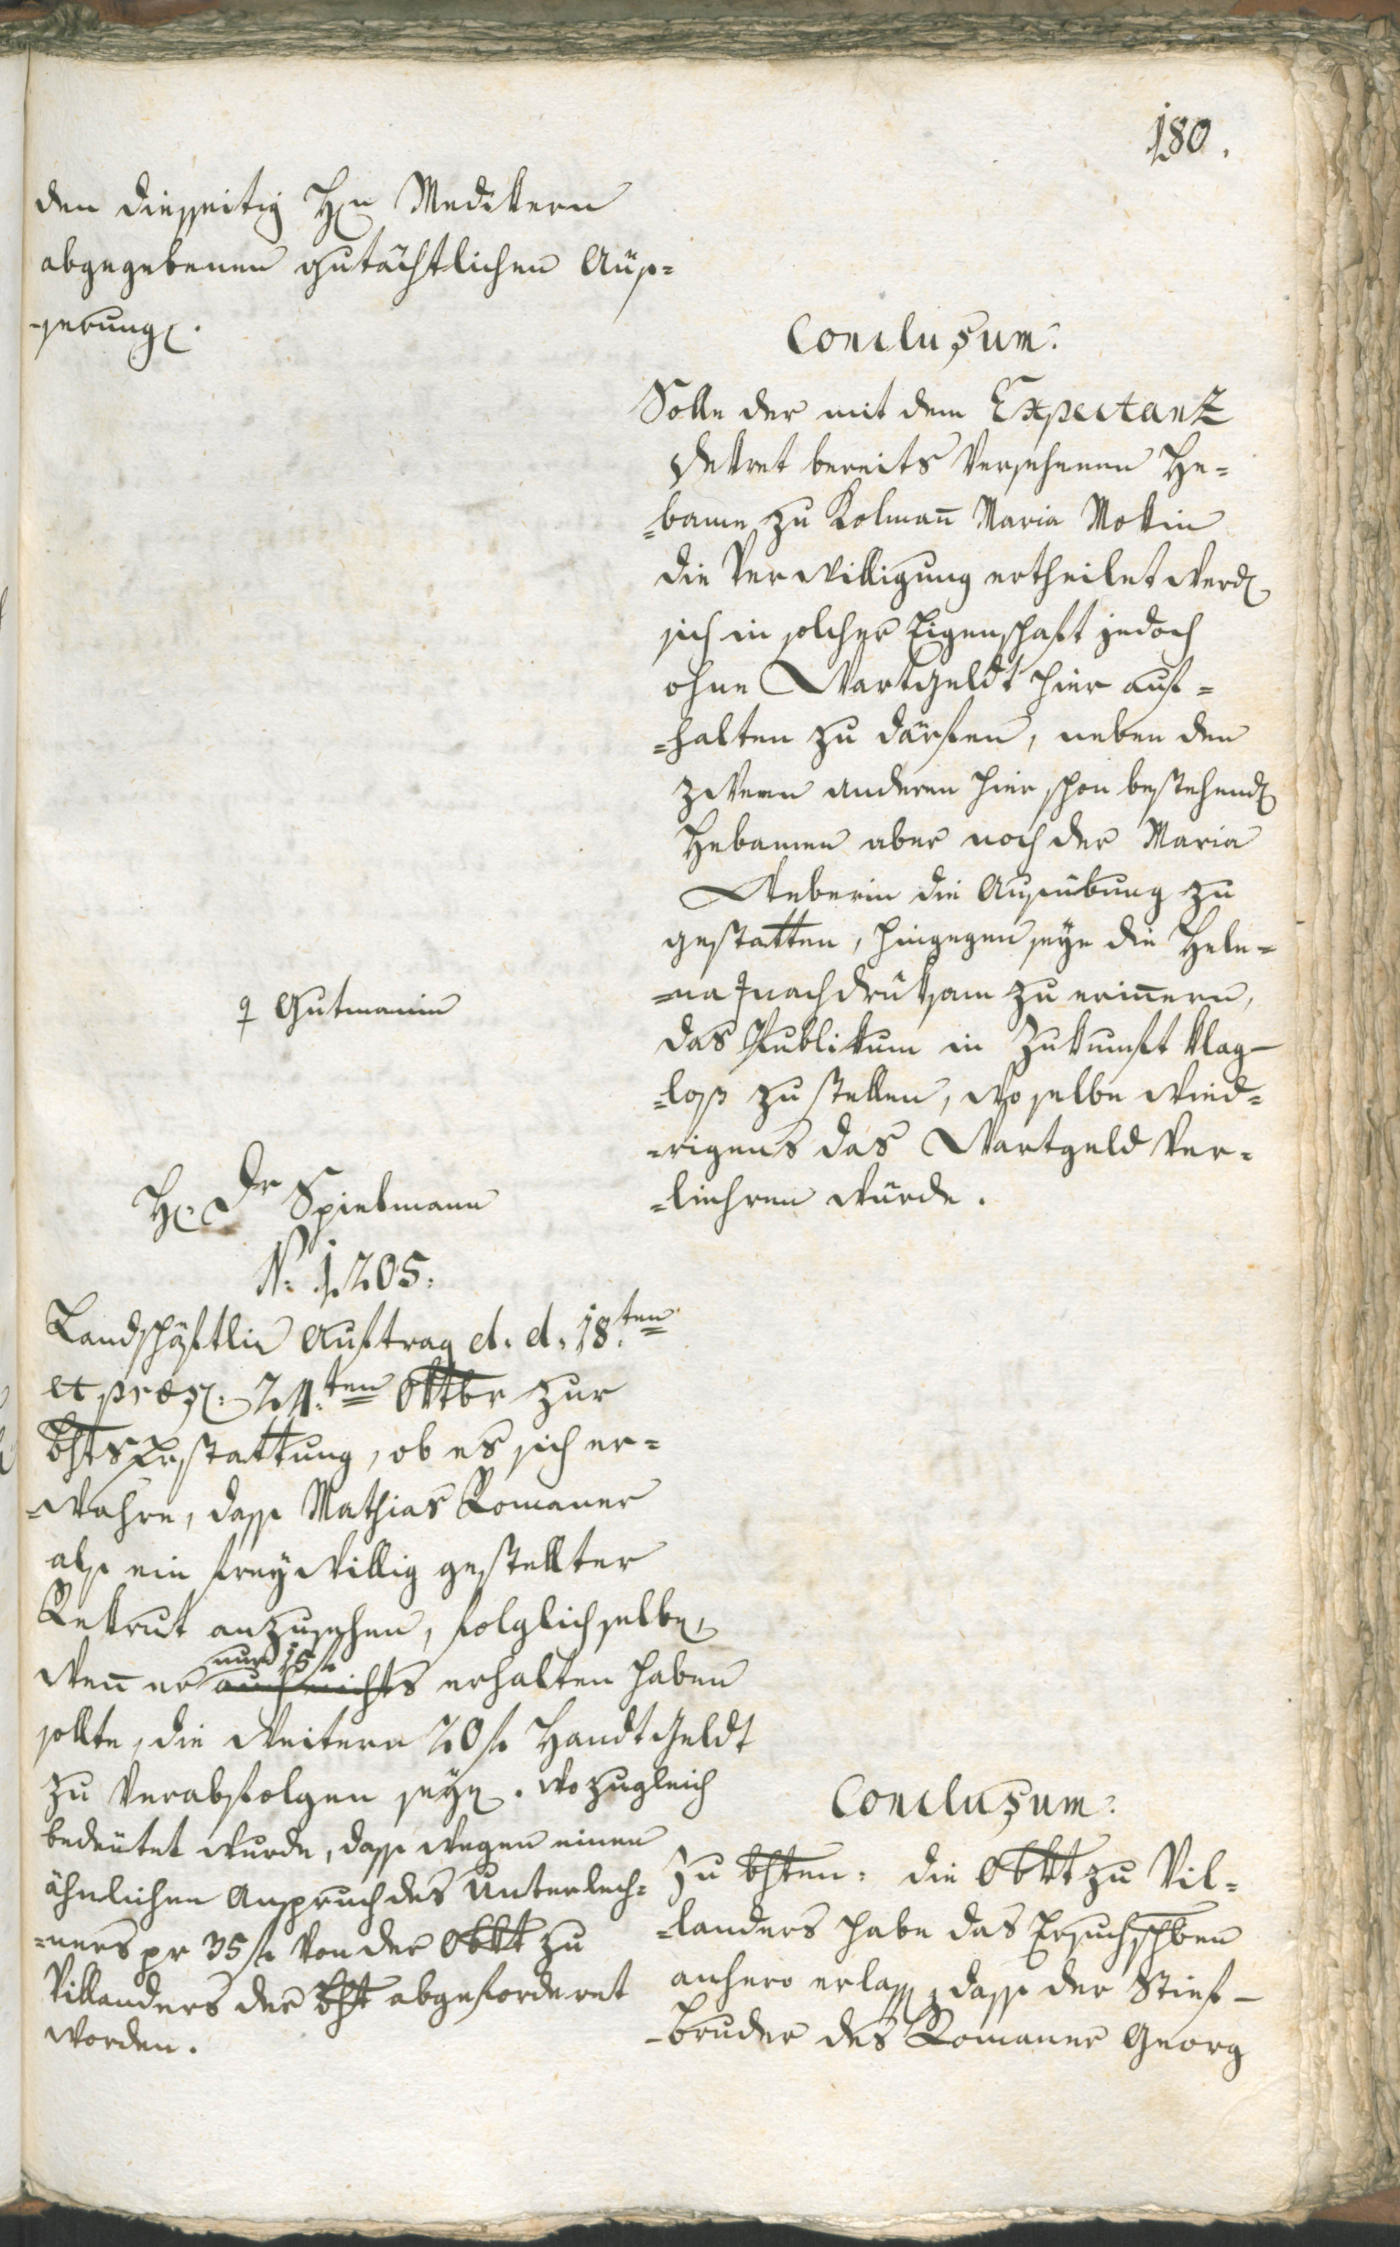 180.
den diesseitig H[en] Medikern
abgegebenen gutächtlichen Aüs=
=serung[en].
Conclusum:
Solle der mit dem Expectanz
Dekret bereits versehenen He=
=bame zu Kolmañ Maria Mokin
die Verwilligung ertheilet werd[en]
sich in solcher Eigenschaft jedoch
ohne Wartgeldt hier auf=
=halten zu därfen, neben den
zween anderen hier schon bestehend[en]
Hebamen aber noch der Maria
Weberin die Ausübung zu
gestatten, hingegen seye die Hele=
=na ♀ nachdrüksam zu eriñern,
das Publikum in Zukunft klag-
=loß zu stellen, wo selbe wied=
=rigens das Wartgeld ver=
=liehren würde.
♀ Gutmanin
H[err] Dr Spielmann
N: 1205:
Landschäftlic Auftrag d. d. 18.ten
et præs[.] 24.ten Oktbr zur
BhtsErstattung, ob es sich er=
=wahre, dass Mathias Romaner
als ein freywillig gestellter
Rekrut anzusehen, folglich selbe[n],
weñ er auch nichts erhalten haben
nur 15 f
sollte, die weitern 20 f Handtgeldt
zu verabfolgen sey[en]. wo zugleich
bedeütet wurde, dass wegen einen
ähnlichen Anspruch des Unterlech=
=ners pr 35 f von der Obkt zu
Villanders der Bht abgeforderet
worden.
Conclusum:
Zu bhten: die Obkt zu Vil=
=landers habe das Ersuchschben
anhero erlass[en], dass der Stief-
=bruder des Romaner Georg